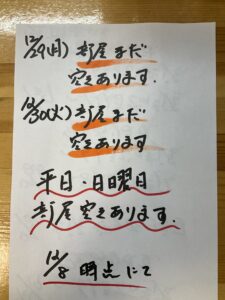 12/29(月)部屋まだ
空きあります.
12/30(火)部屋まだ
空きあります
平日・日曜日
部屋空きあります.
12/8 時点にて